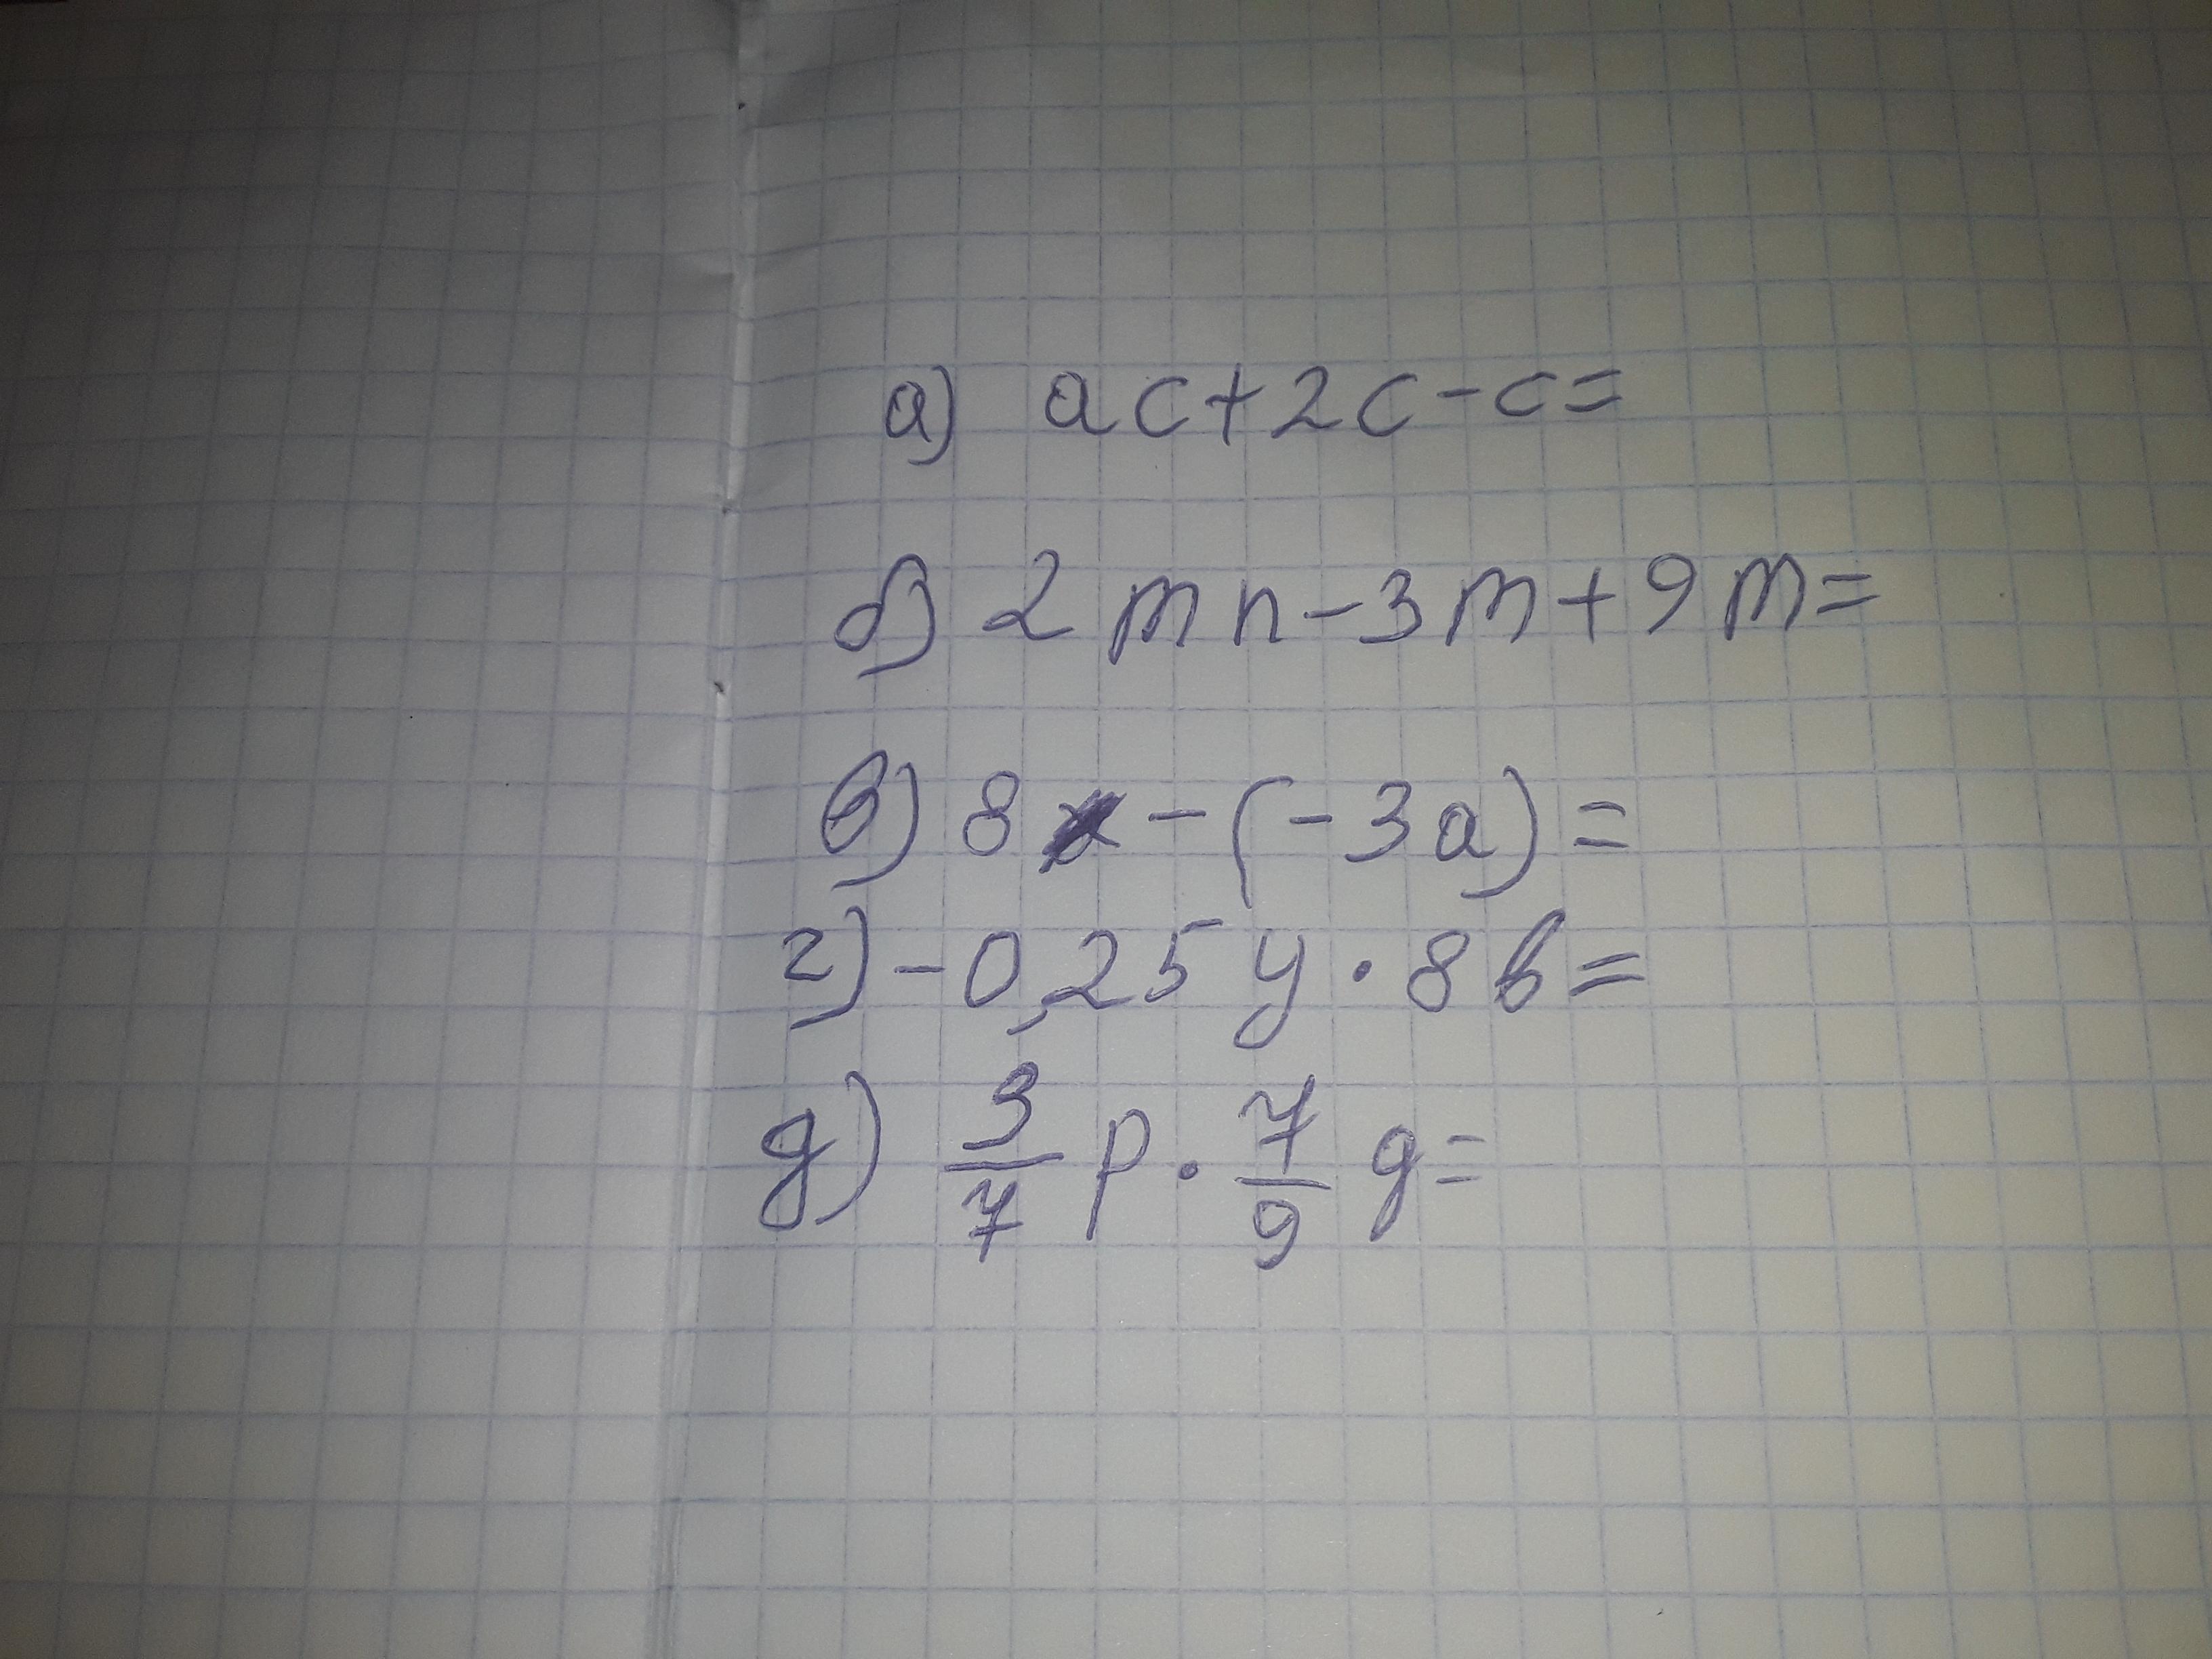 а) ac+2c-c=
б) 2mn-3m+9m=
в) 8 -(-3a)=
г) -0,25y·8b=
д) 3/7 p·7/9 g=